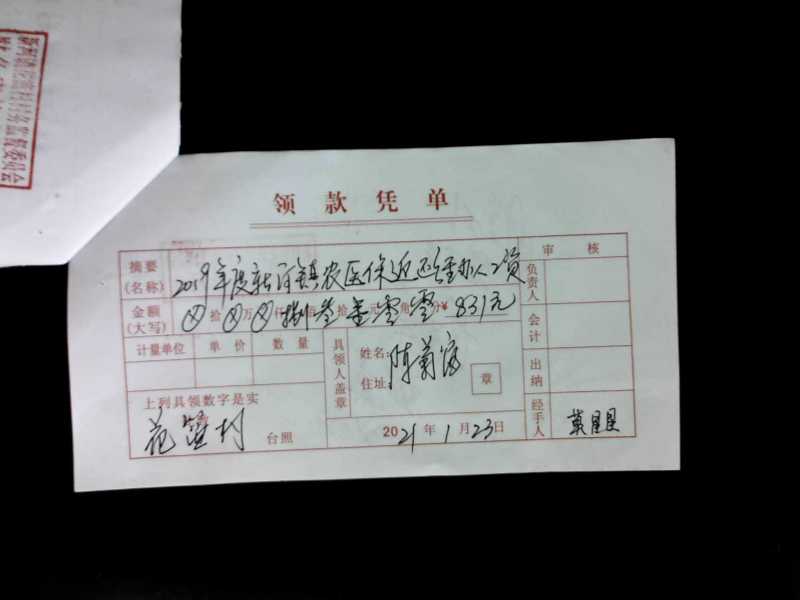 村务监督委员会
领款凭单
审核
摘要
(名称)
2019年度新河镇农医保返还经办人工资
负责人
金额
(大写)
⊗拾⊗万⊗仟捌佰叁拾壹元零角零分¥831元
会计
计量单位 单价 数量
具领人盖章
姓名:陈菊
住址:
章
出纳
上列具领数字是实
花 村 台照
2021年1月23日
经手人
莫星星